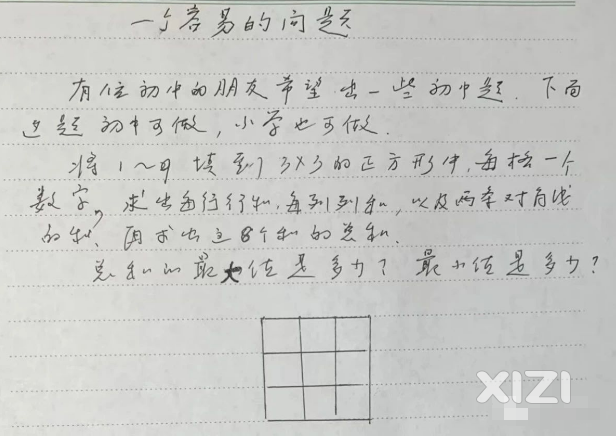 一个容易的问题
有位初中的朋友希望出一些初中题. 下面
这题初中可做, 小学也可做.
将1~9填到3×3的正方形中, 每格一个
数字, 求出每行行和, 每列列和, 以及两条对角线
的和. 再求出这8个和的总和.
总和的最大值是多少? 最小值是多少?
XIZI